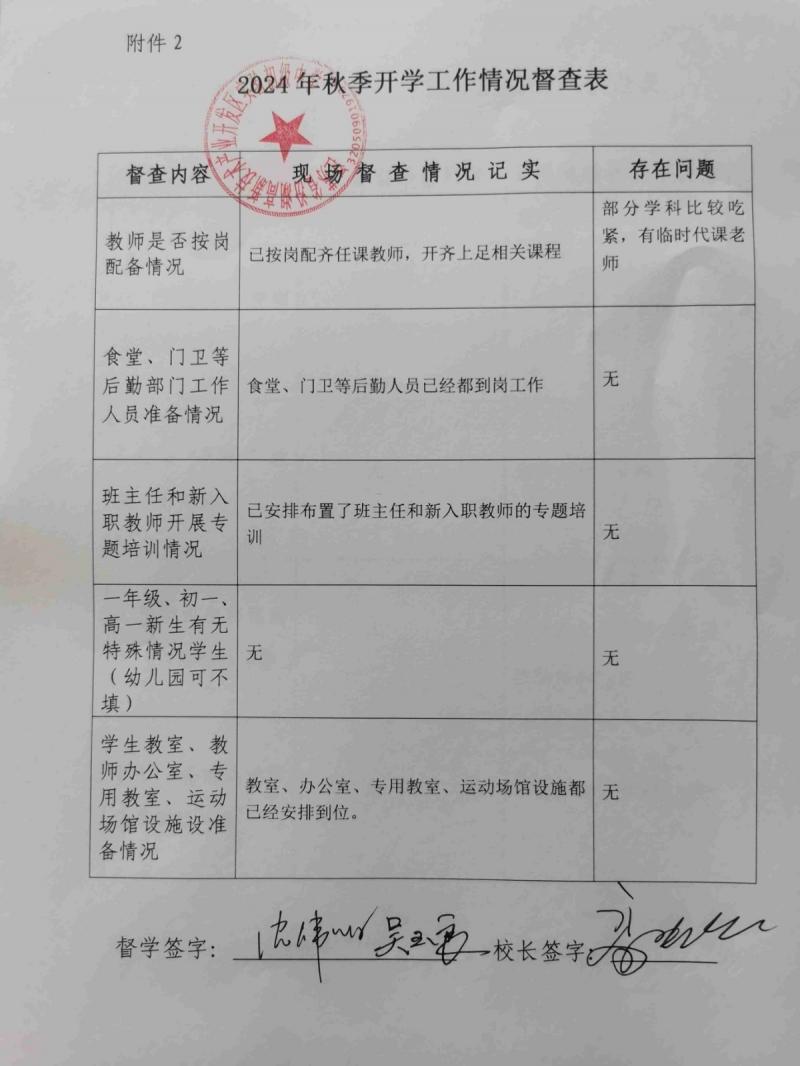 附件 2
2024 年秋季开学工作情况督查表
督查内容
现场督查情况记实
存在问题
教师是否按岗
配备情况
已按岗配齐任课教师，开齐上足相关课程
部分学科比较吃
紧，有临时代课老
师
食堂、门卫等
后勤部门工作
人员准备情况
食堂、门卫等后勤人员已经都到岗工作
无
班主任和新入
职教师开展专
题培训情况
已安排布置了班主任和新入职教师的专题培
训
无
一年级、初一、
高一新生有无
特殊情况学生
（幼儿园可不
填）
无
无
学生教室、教
师办公室、专
用教室、运动
场馆设施设准
备情况
教室、办公室、专用教室、运动场馆设施都
已经安排到位。
无
督学签字：
校长签字：